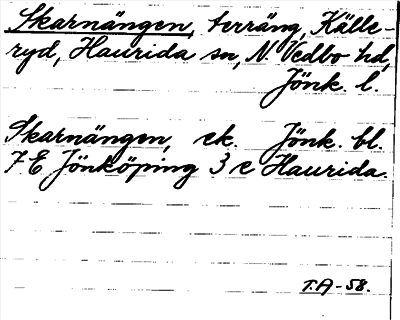 Skarnängen, terräng, Källe-
ryd, Haurida sn, N. Vedbo hd,
Jönk. l.
Skarnängen, ek. Jönk. bl.
7 E Jönköping 3 e Haurida.
T.A-58.